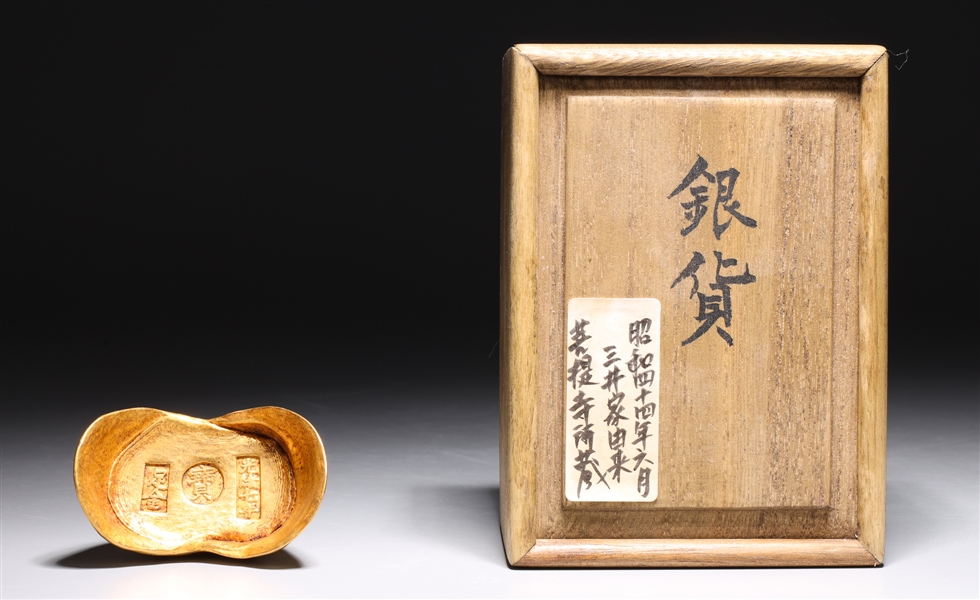 銀貨
昭和四十四年六月
三井家由来
菩提寺所蔵